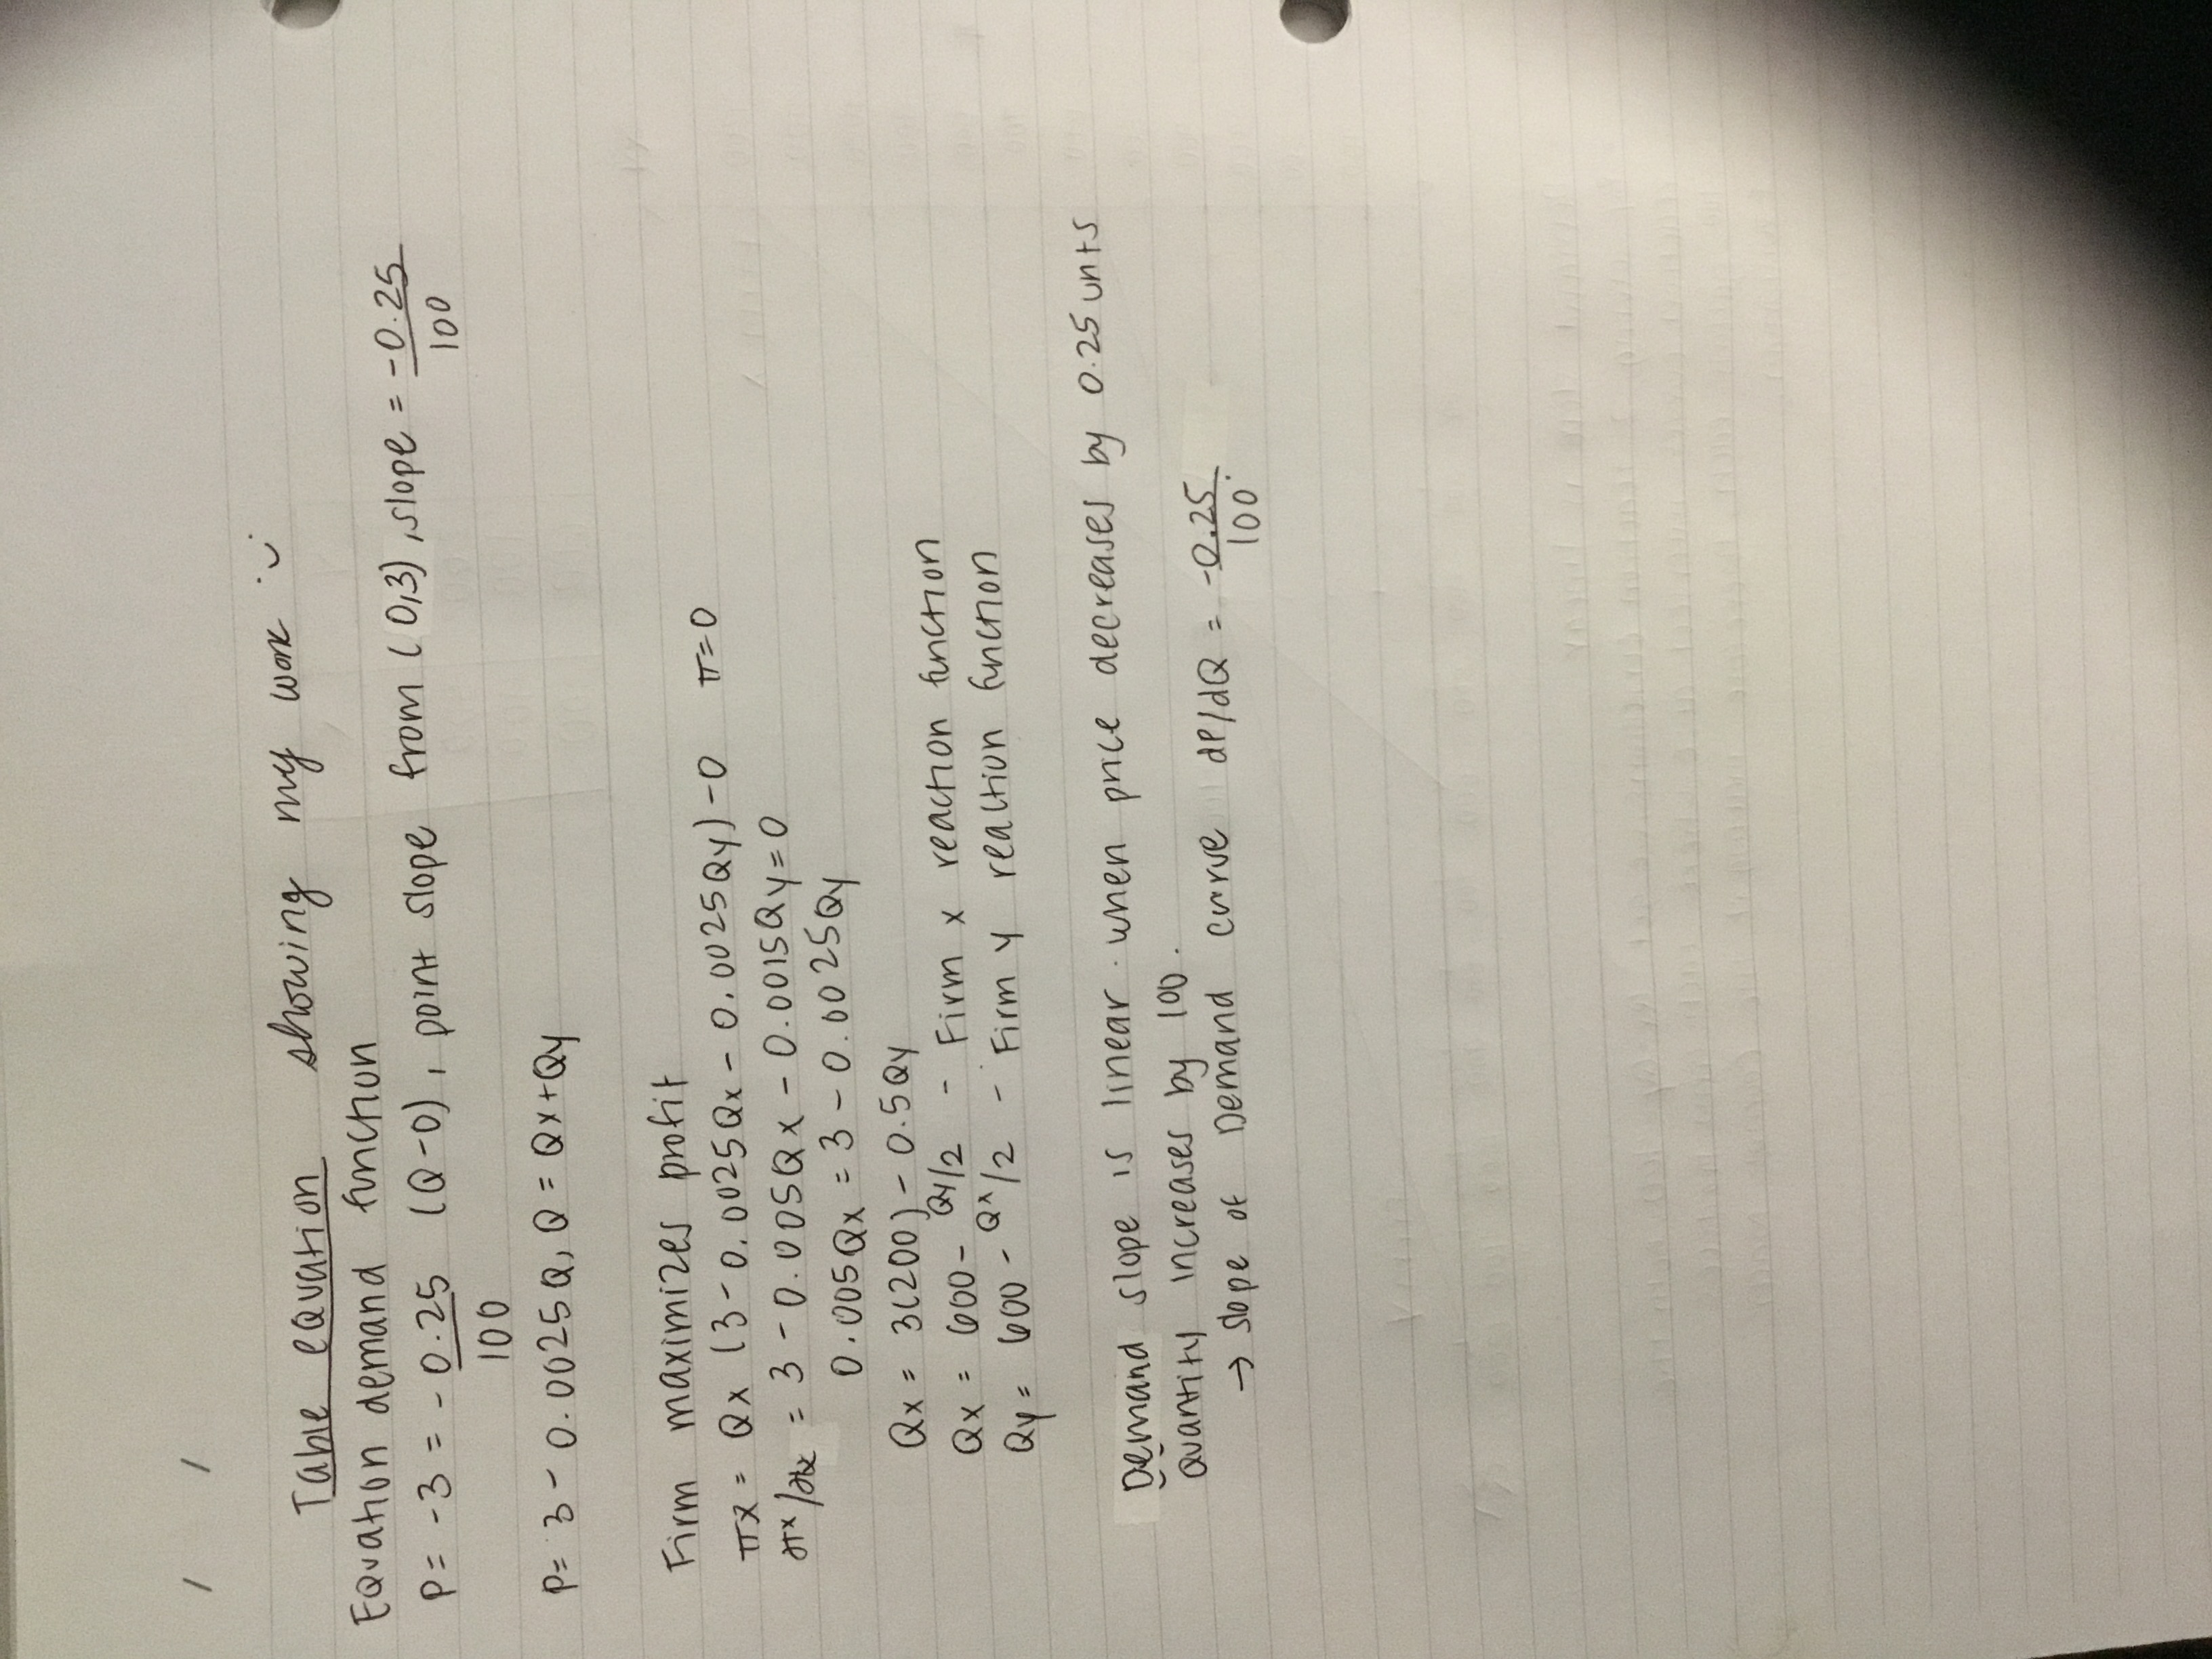 Table equation showing my work :)
Equation demand function
P = -3 = - 0.25/100 (Q-0), point slope from (0,3), slope = -0.25/100
P = 3 - 0.0025Q, Q = Qx+Qy
Firm maximizes profit
πx = Qx (3 - 0.0025Qx - 0.0025Qy) - 0 π=0
∂πx/∂x = 3 - 0.005Qx - 0.0015Qy = 0
0.005Qx = 3 - 0.0025Qy
Qx = 3(200) - 0.5Qy
Qx = 600 - Qy/2 - Firm x reaction function
Qy = 600 - Qx/2 - Firm y reaction function
Demand slope is linear. when price decreases by 0.25 unts
quantity increases by 100.
→ slope of Demand curve dP/dQ = -0.25/100.